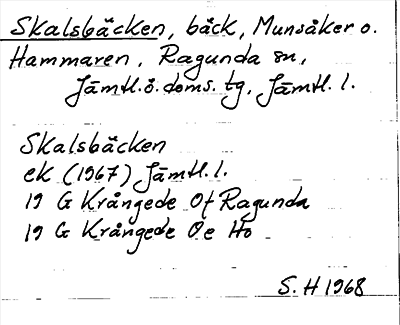 Skalsbäcken, bäck, Munsåker o.
Hammaren, Ragunda sn,
Jämtl.ö.doms.tg, Jämtl.l.
Skalsbäcken
ek (1967) Jämtl.l.
19 G Krångede Of Ragunda
19 G Krångede Öe Ho
S.H 1968